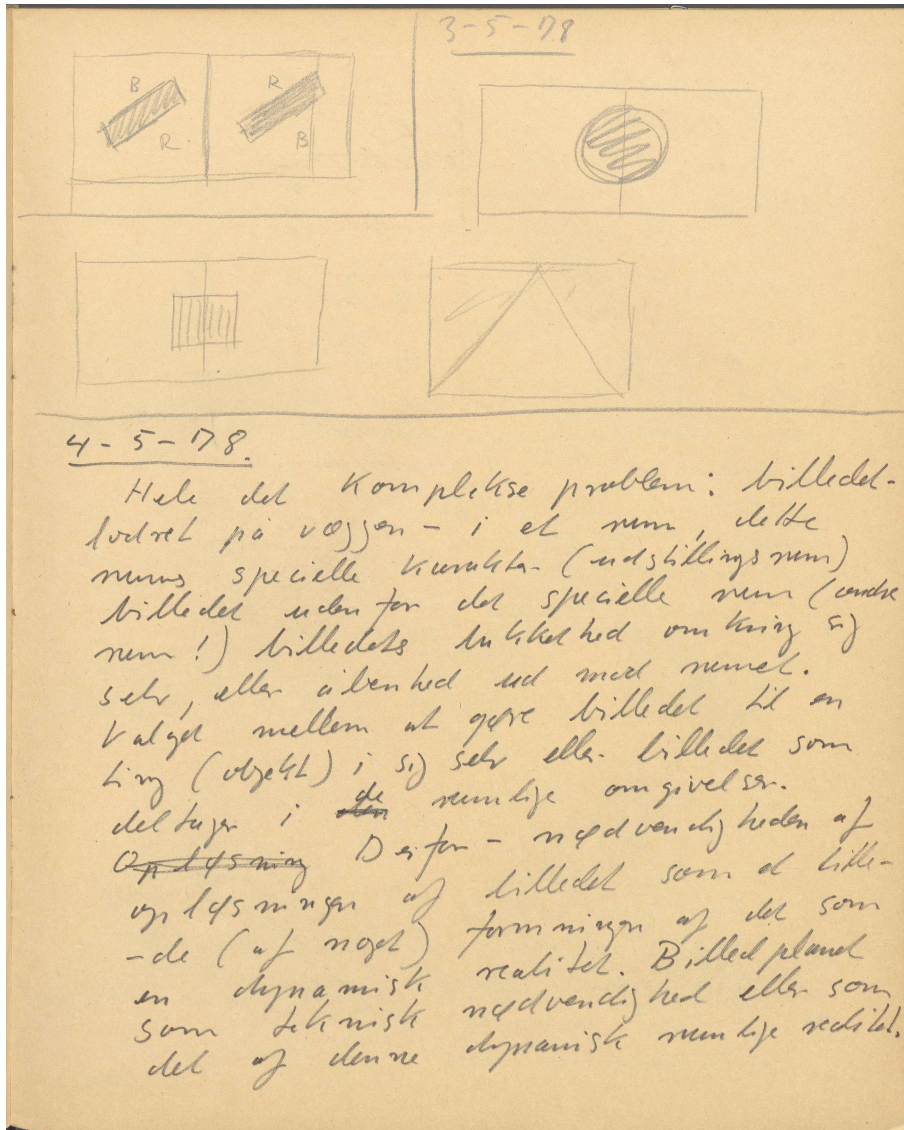 3-5-78
B
R
R
B
4-5-78.
Hele det komplekse problem: billedet-
lodret på væggen - i et rum, dette
rums specielle karakter (udstillingsrum)
billedet udenfor det specielle rum (andre
rum!) billedets lukkethed omkring sig
selv, eller åbenhed ud mod rummet.
Valget mellem at gøre billedet til en
ting (objekt) i sig selv eller billedet som
deltager i de rumlige omgivelser.
Opløsning Derfor - nødvendigheden af
opløsningen af billedet som et bille-
-de (af noget) formningen af det som
en dynamisk realitet. Billedplanet
som teknisk nødvendighed eller som
del af denne dynamisk rumlige realitet.